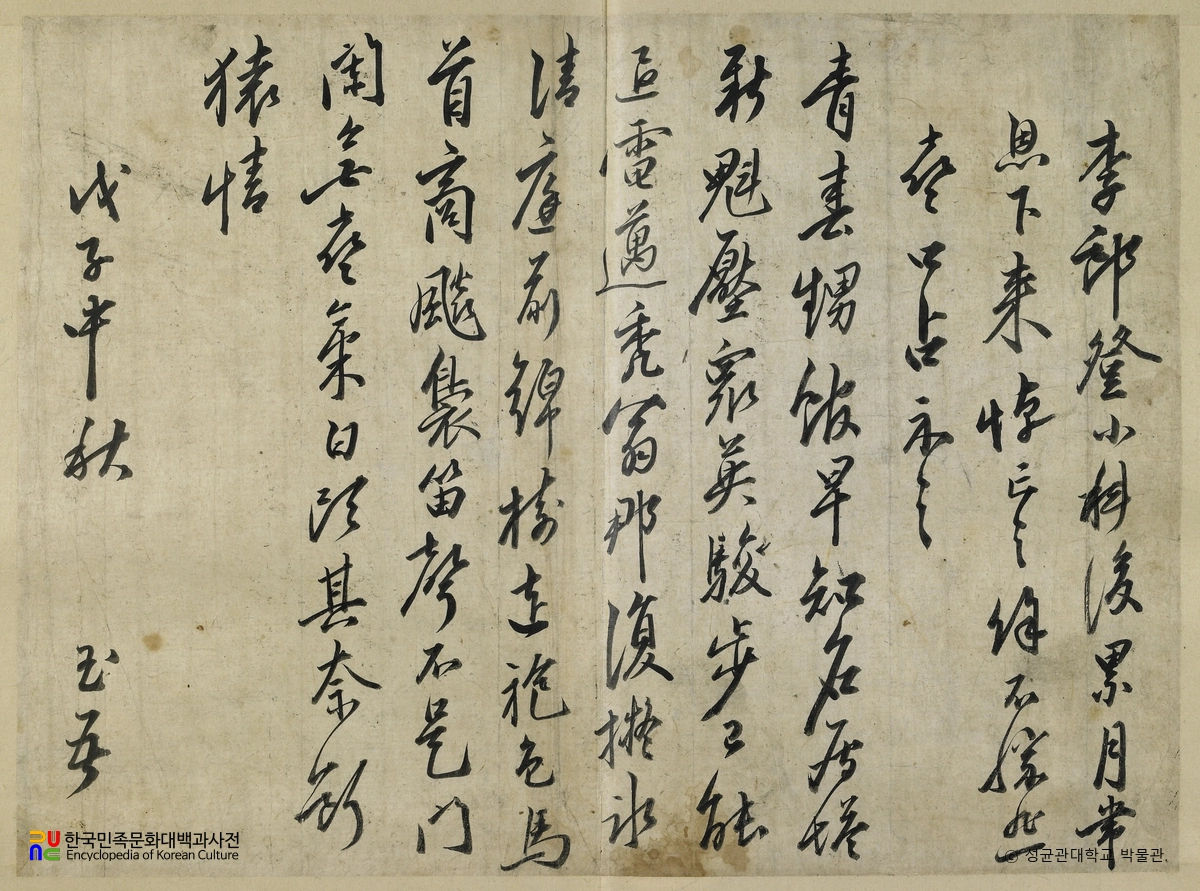 李郎登小科後累月帶
恩下來悼亡之餘不勝悲
喜口占示之
青春甥館早知名蟾
新魁壓衆英駿步已能
追電邁禿翁那復擬氷
清庭前錦樹迷袍色馬
首商颷裊笛聲不是門
闌無喜氣白頭其奈斷
猿情
戊子中秋 玉吾
한국민족문화대백과사전
Encyclopedia of Korean Culture
© 성균관대학교 박물관.